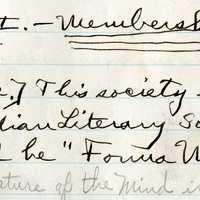 t. — Members
e.] This society
dian Literary So
l be "Forma U
ature of the Mind i